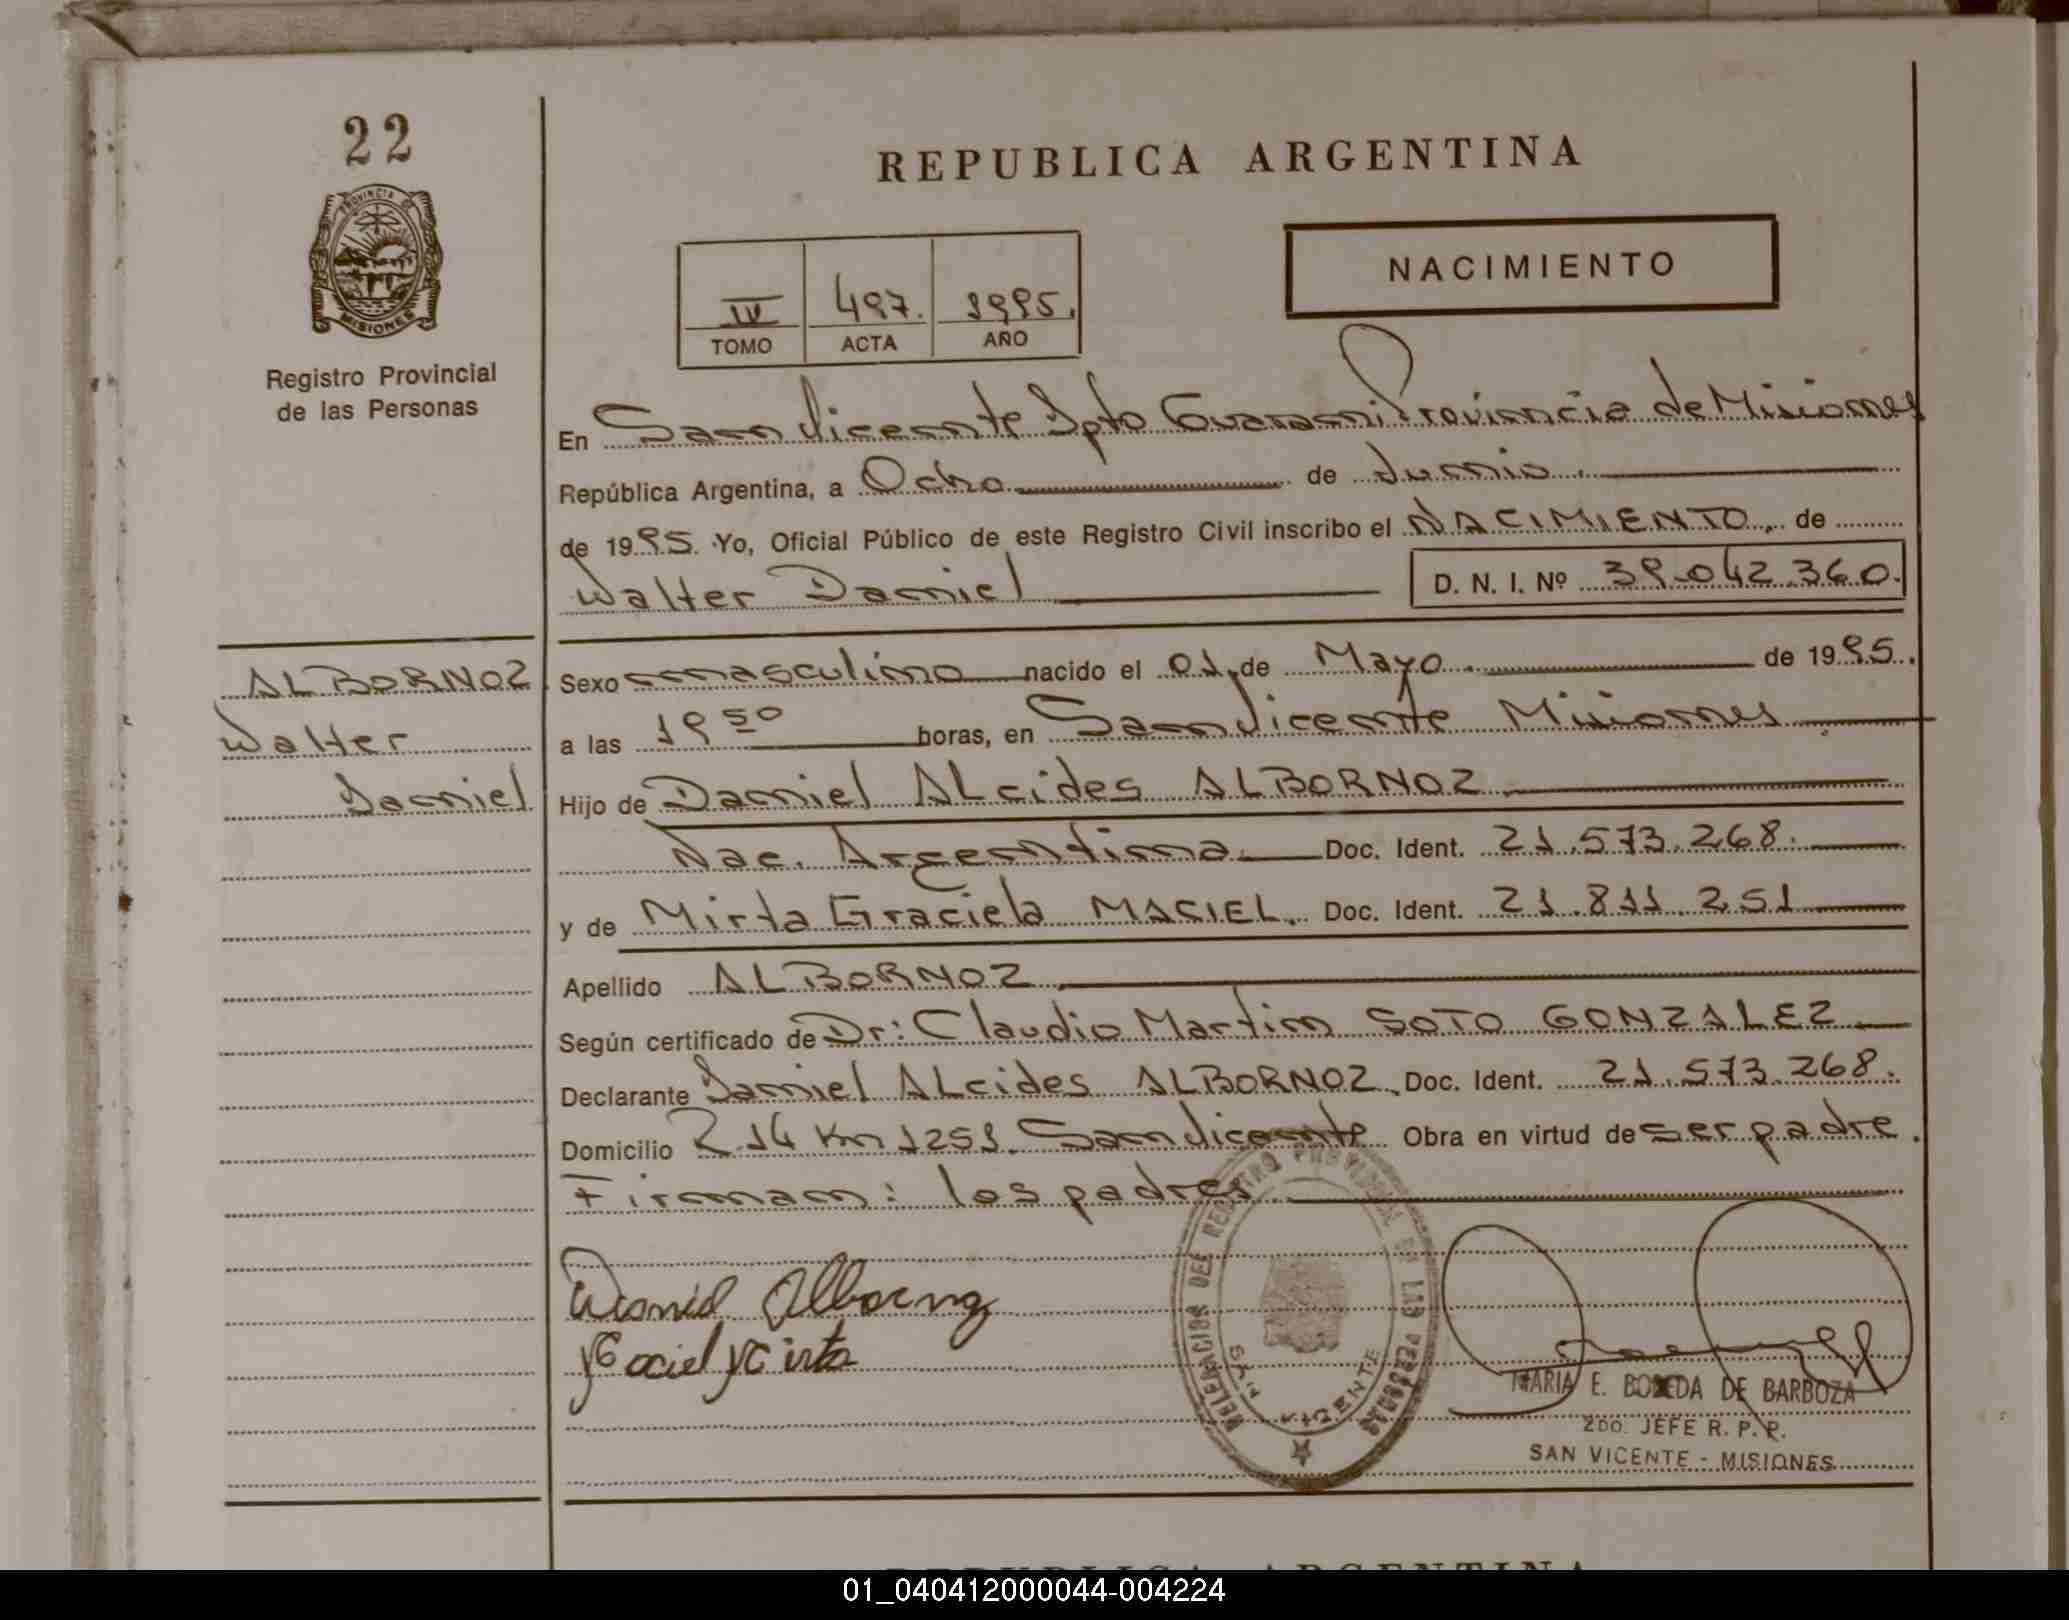 22
PROVINCIA DE
MISIONES
Registro Provincial
de las Personas
REPUBLICA ARGENTINA
IV 497. 1995.
TOMO ACTA AÑO
NACIMIENTO
En San Vicente Dpto Guarani Provincia de Misiones
República Argentina, a Ocho de Junio
de 1995. Yo, Oficial Público de este Registro Civil inscribo el NACIMIENTO, de
Walter Daniel D. N. I. Nº 39.042.360.
ALBORNOZ
Walter
Daniel
Sexo masculino nacido el 01 de Mayo de 1995.
a las 19 50 horas, en San Vicente Misiones
Hijo de Daniel ALcides ALBORNOZ
Nac. Argentina Doc. Ident. 21.573.268.
y de Mirta Graciela MACIEL. Doc. Ident. 21.811.251
Apellido ALBORNOZ
Según certificado de Dr: Claudio Martin SOTO GONZALEZ
Declarante Daniel ALcides ALBORNOZ Doc. Ident. 21.573.268.
Domicilio R 14 Km 1251 San Vicente Obra en virtud de ser padre.
Firman: los padres
Daniel Albornoz
Maciel Mirta
DELEGACION DEL REGISTRO PROVINCIAL DE LAS PERSONAS
SAN VICENTE
MARIA E. DE BARBOZA
2DO. JEFE R. P. P.
SAN VICENTE - MISIONES
REPUBLICA ARGENTINA
01_040412000044-004224